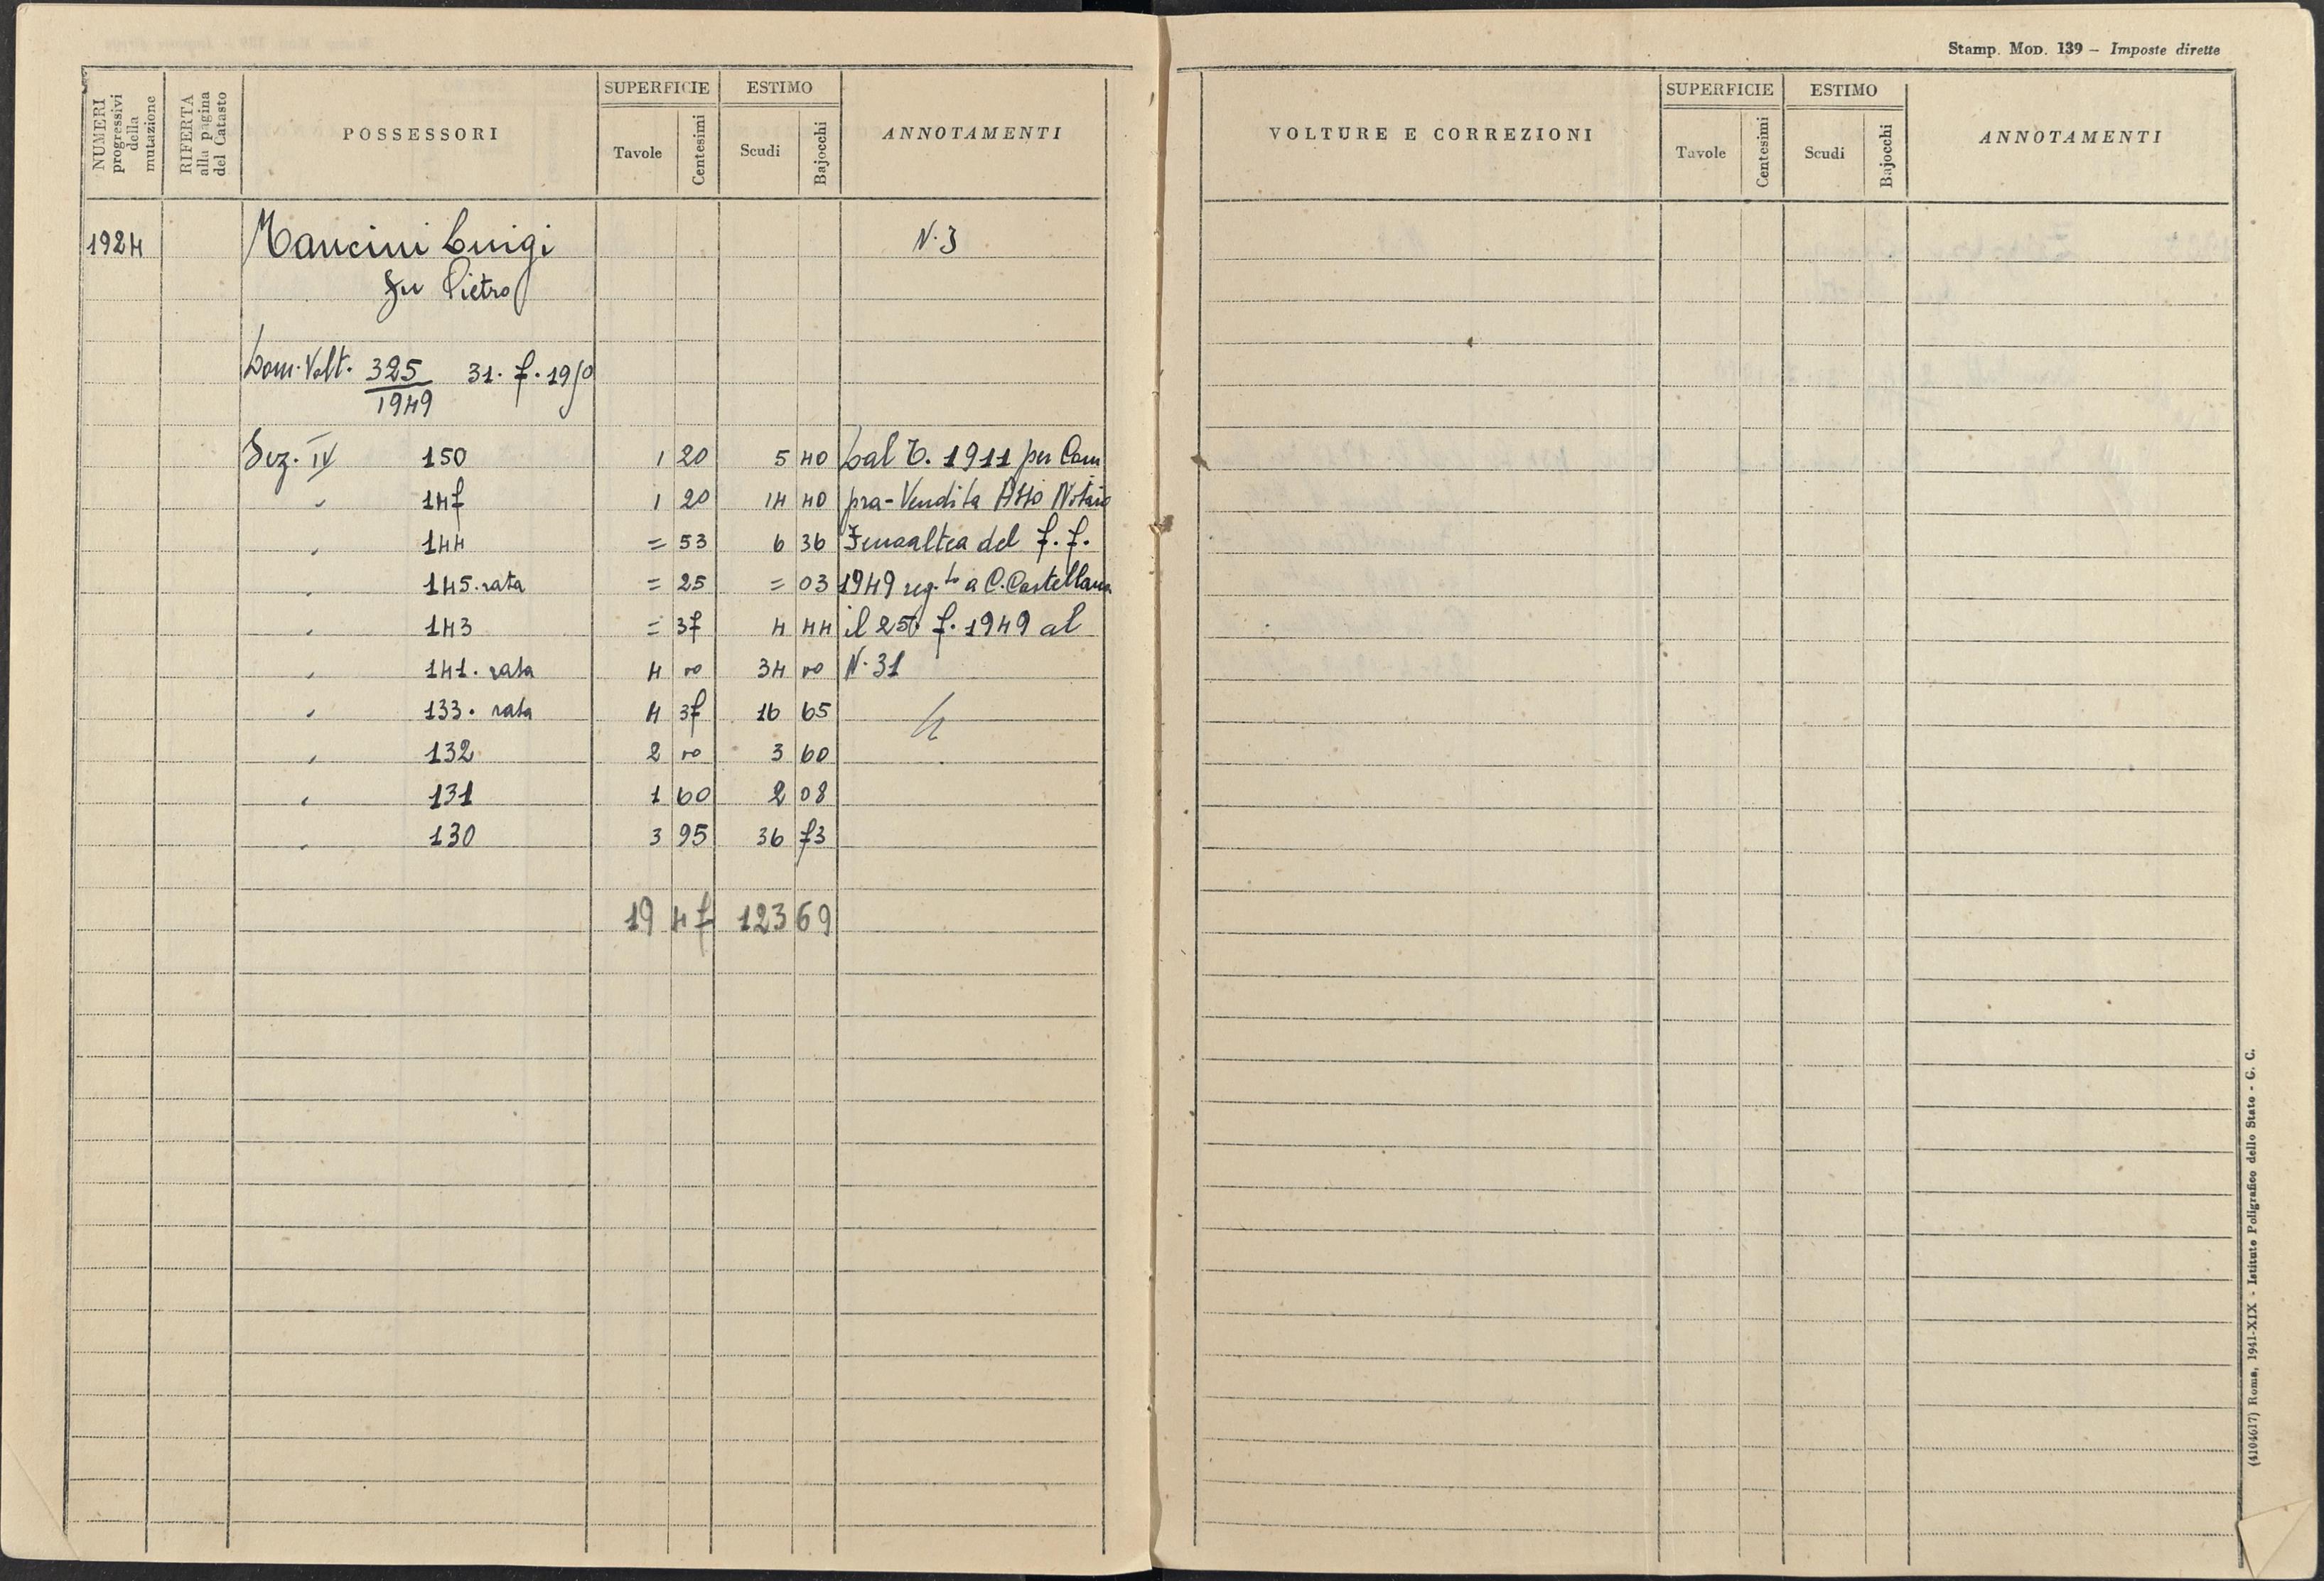 Stamp. Mod. 139 – Imposte dirette
NUMERI progressivi della mutazione
RIFERTA alla pagina del Catasto
POSSESSORI
SUPERFICIE
Tavole
Centesimi
ESTIMO
Scudi
Bajocchi
ANNOTAMENTI
VOLTURE E CORREZIONI
SUPERFICIE
Tavole
Centesimi
ESTIMO
Scudi
Bajocchi
ANNOTAMENTI
1924 Mancini Luigi N. 3
fu Pietro
Dom. Volt. 325/1949 31. 7. 1950
Sez. IV 150 1 20 5 40 Dal T. 1911 per Com
" 147 1 20 14 40 pra-Vendita Atto Notaio
" 144 = 53 6 36 del 7. 7.
" 145. rata = 25 = 03 1949 reg.to a C. Castellana
" 143 = 37 4 44 il 25. 7. 1949 al
" 141. rata 4 00 34 00 N. 31
" 133. rata 4 37 16 65
" 132 2 00 3 60
" 131 1 60 2 08
" 130 3 95 36 73
19 47 123 69
(4104617) Roma, 1941-XIX - Istituto Poligrafico dello Stato - G. C.